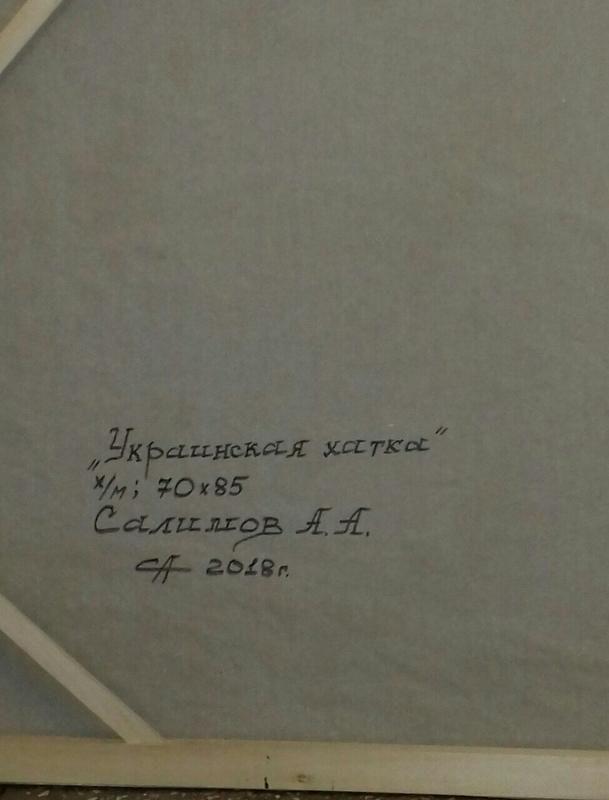 „Украинская хатка"
х/м; 70х85
Салимов А.А.
СА 2018г.